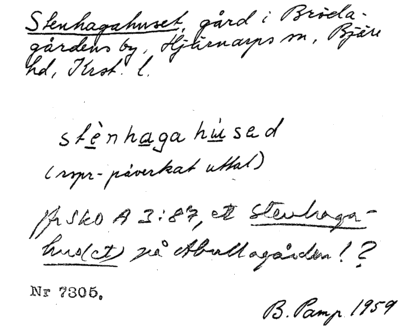 Stenhagahuset, gård i Bröda-
gårdens by, Hjärnarps sn, Bjäre
hd, Krst. l.
stènhagahùsed
(rspr-påverkat uttal)
Jfr SkO A 3:87, ett Stenhaga-
hus(et) på Abullagården! ?
Nr 7305.
B. Pamp 1959